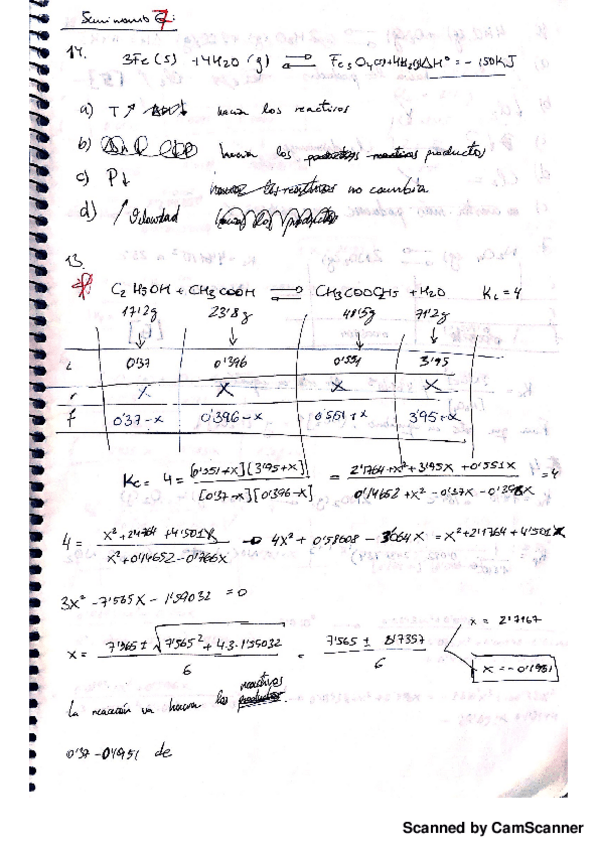 Seminario 7:
14.
3Fe(s) + 4H2O (g) ⇌ Fe3O4(s) + 4H2(g) ΔH° = -150KJ
a) T ↗ hacia los reactivos
b) hacia los productos
c) P↓ no cambia
d) ↑ Velocidad
13.
C2H5OH + CH3COOH ⇌ CH3COOC2H5 + H2O Kc = 4
17'2g 23'8g 48'5g 71'2g
i 0'37 0'396 0'551 3'95
r X X X X
f 0'37-x 0'396-x 0'551+x 3'95+x
Kc = 4 = [0'551+x][3'95+x] / [0'37-x][0'396-x] = 2'1764+x²+3'95x+0'551x / 0'14652+x²-0'37x-0'396x = 4
4 = x²+2'1764+4'501x / x²+0'14652-0'766x → 4x² + 0'58608 - 3'064x = x²+2'1764+4'501x
3x² - 7'565x - 1'59032 = 0
x = 7'565 ± √7'565² + 4·3·1'59032 / 6 = 7'565 ± 8'7357 / 6
x = 2'7167
x = -0'1951
reactivos
la reacción va hacia los productos.
0'37-0'1951 de
Scanned by CamScanner